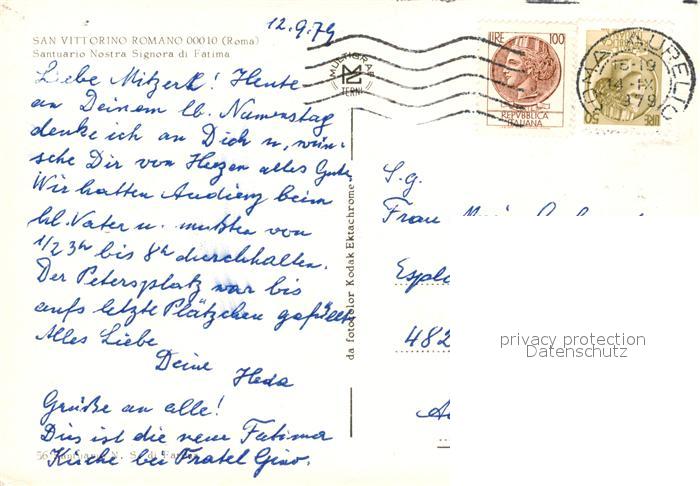 12.9.79
SAN VITTORINO ROMANO 00010 (Roma)
Santuario Nostra Signora di Fatima
Liebe Mitzerl! Heute
an Deinem lb. Namenstag
denke ich an Dich u. wün-
sche Dir von Herzen alles Gute.
Wir hatten Audienz beim
hl. Vater u. mußten von
1/2 3h bis 8h durchhalten.
Der Petersplatz war bis
aufs letzte Plätzchen gefüllt.
Alles Liebe
Deine
Heda
Grüße an alle!
Dies ist die neue Fatima
Kirche bei Fratel Gino.
MULTIGRAF
TERNI
da fotocolor Kodak Ektachrome
LIRE 100
REPVBBLICA
ITALIANA
LIRE 50
ROMA AURELIO
14-IX
1979
S.g.
Frau
482
privacy protection
Datenschutz